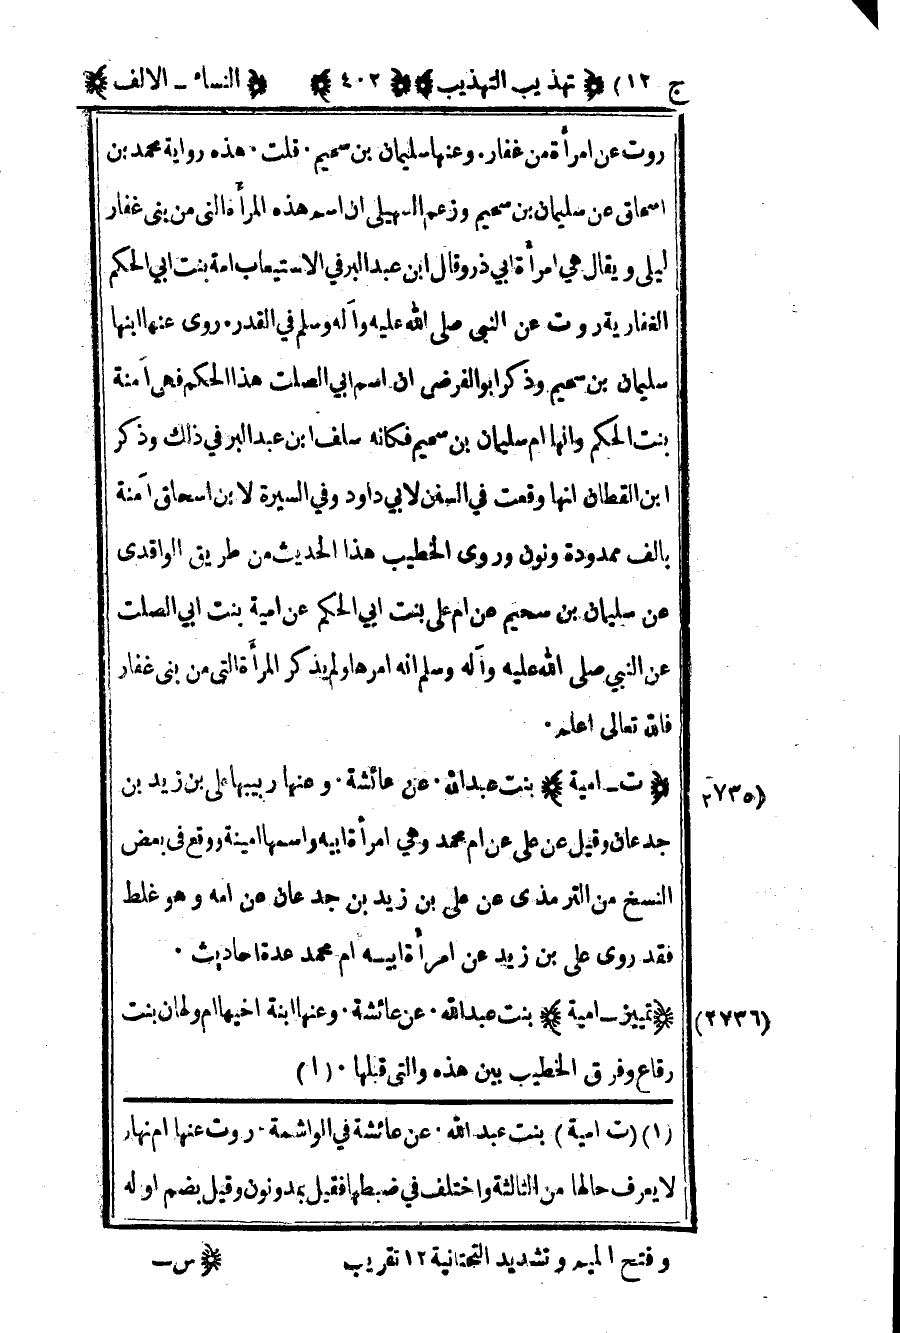 ج ١٢) ﴿ تهذيب التهذيب ﴾ ﴿ ٤٠٢ ﴾ ﴿ النساء ـ الالف ﴾
روت عن امرأة من غفار. وعنها سليمان بن سحيم٠ قلت٠ هذه رواية محمد بن
اسحاق عن سليمان بن سحيم وزعم السهيلي ان اسم هذه المرأة التى من بنى غفار
ليلى ويقال هي امرأة ابي ذر وقال ابن عبد البر في الاستيعاب امة بنت ابي الحكم
الغفارية روت عن النبي صلى الله عليه وآله وسلم في القدر. روى عنها ابنها
سليمان بن سحيم وذكر ابو الفرضى ان اسم ابي الصلت هذا الحكم فهى آمنة
بنت الحكم وانها ام سليمان بن سحيم فكانه سلف ابن عبد البر في ذلك وذكر
ابن القطان انها وقعت في السنن لابي داود وفي السيرة لابن اسحاق آمنة
بالف ممدودة ونون وروى الخطيب هذا الحديث من طريق الواقدى
عن سليمان بن سحيم عن ام على بنت ابي الحكم عن امية بنت ابي الصلت
عن النبي صلى الله عليه وآله وسلم انه امرها ولم يذكر المرأة التى من بنى غفار
فالله تعالى اعلم٠
﴿ ت ـ امية ﴾ بنت عبد الله٠ عن عائشة٠ وعنها ربيبها على بن زيد بن (٢٧٣٥)
جدعان وقيل عن على عن ام محمد وهي امرأة ابيه واسمها امينة ووقع فى بعض
النسخ من الترمذى عن على بن زيد بن جدعان عن امه وهو غلط
فقد روى على بن زيد عن امرأة ابيه ام محمد عدة احاديث ٠
﴿ تمييز ـ امية ﴾ بنت عبد الله٠ عن عائشة٠ وعنها ابنة اخيها ام ولهان بنت (٢٧٣٦)
رقاع وفرق الخطيب بين هذه والتى قبلها ٠(١)
(١) (ت امية) بنت عبد الله٠ عن عائشة في الواشمة٠ روت عنها ام نهار
لا يعرف حالها من الثالثة واختلف في ضبطها فقيل بمد ونون وقيل بضم اوله
وفتح الميم وتشديد التحتانية ١٢ تقريب ﴿ س ـ